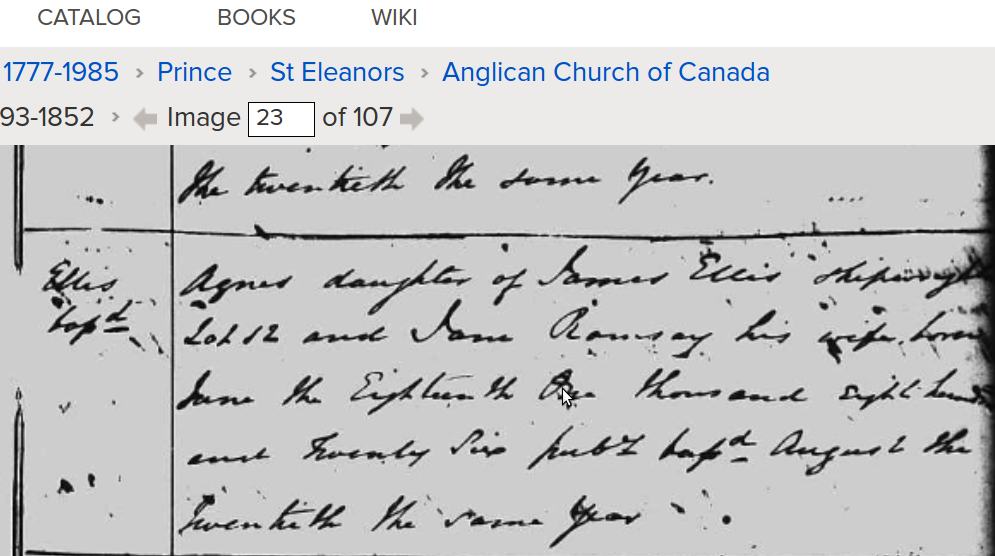 CATALOG BOOKS WIKI
1777-1985 › Prince › St Eleanors › Anglican Church of Canada
93-1852 › Image 23 of 107
the twentieth the same year.
Ellis
bapd
Agnes daughter of James Ellis shipwright
Lot 12 and Jane Ramsay his wife, born
June the Eighteenth One thousand eight hund
and Twenty Six publ bapd August the
Twentieth the same Year